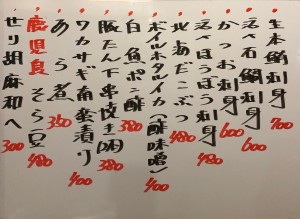 生本鮪刺身 700
活〆石鯛刺身 600
かつお刺身 600
活〆ほうぼう刺身 480
北海だこぶつ 480
ボイルホタルイカ(酢味噌) 400
白魚ポン酢 380
豚たん下串焼き 380
ワカサギ南蛮漬け 400
あら煮 380
鹿児島そら豆 480
せり胡麻和へ 300